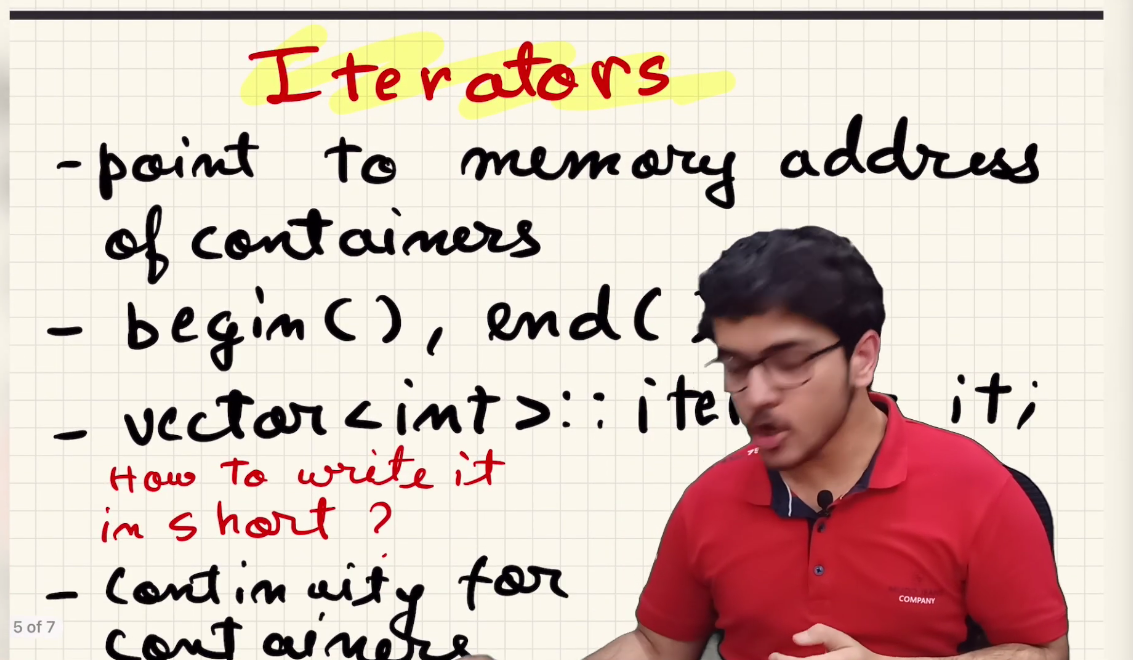 Iterators
- point to memory address
of containers
- begin(), end( )
- vector<int>:: ite it;
How to write it
in short ?
- Continuity for
containers
5 of 7
COMPANY